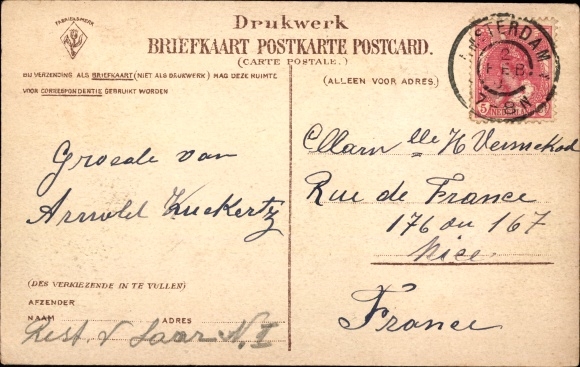 FABRIEKSMERK
Drukwerk
BRIEFKAART POSTKARTE POSTCARD.
(CARTE POSTALE.)
BIJ VERZENDING ALS BRIEFKAART (NIET ALS DRUKWERK) MAG DEZE RUIMTE
VOOR CORRESPONDENTIE GEBRUIKT WORDEN
(ALLEEN VOOR ADRES.)
AMSTERDAM
FEB
7-8N
5 NEDERLAND
Groeale van
Arnold Zuckertz
Mam lle H Vermekod
Rue de France
176 ou 167
Nice
France
(DES VERKIEZENDE IN TE VULLEN)
AFZENDER
NAAM ADRES
Rest. Saar N. I